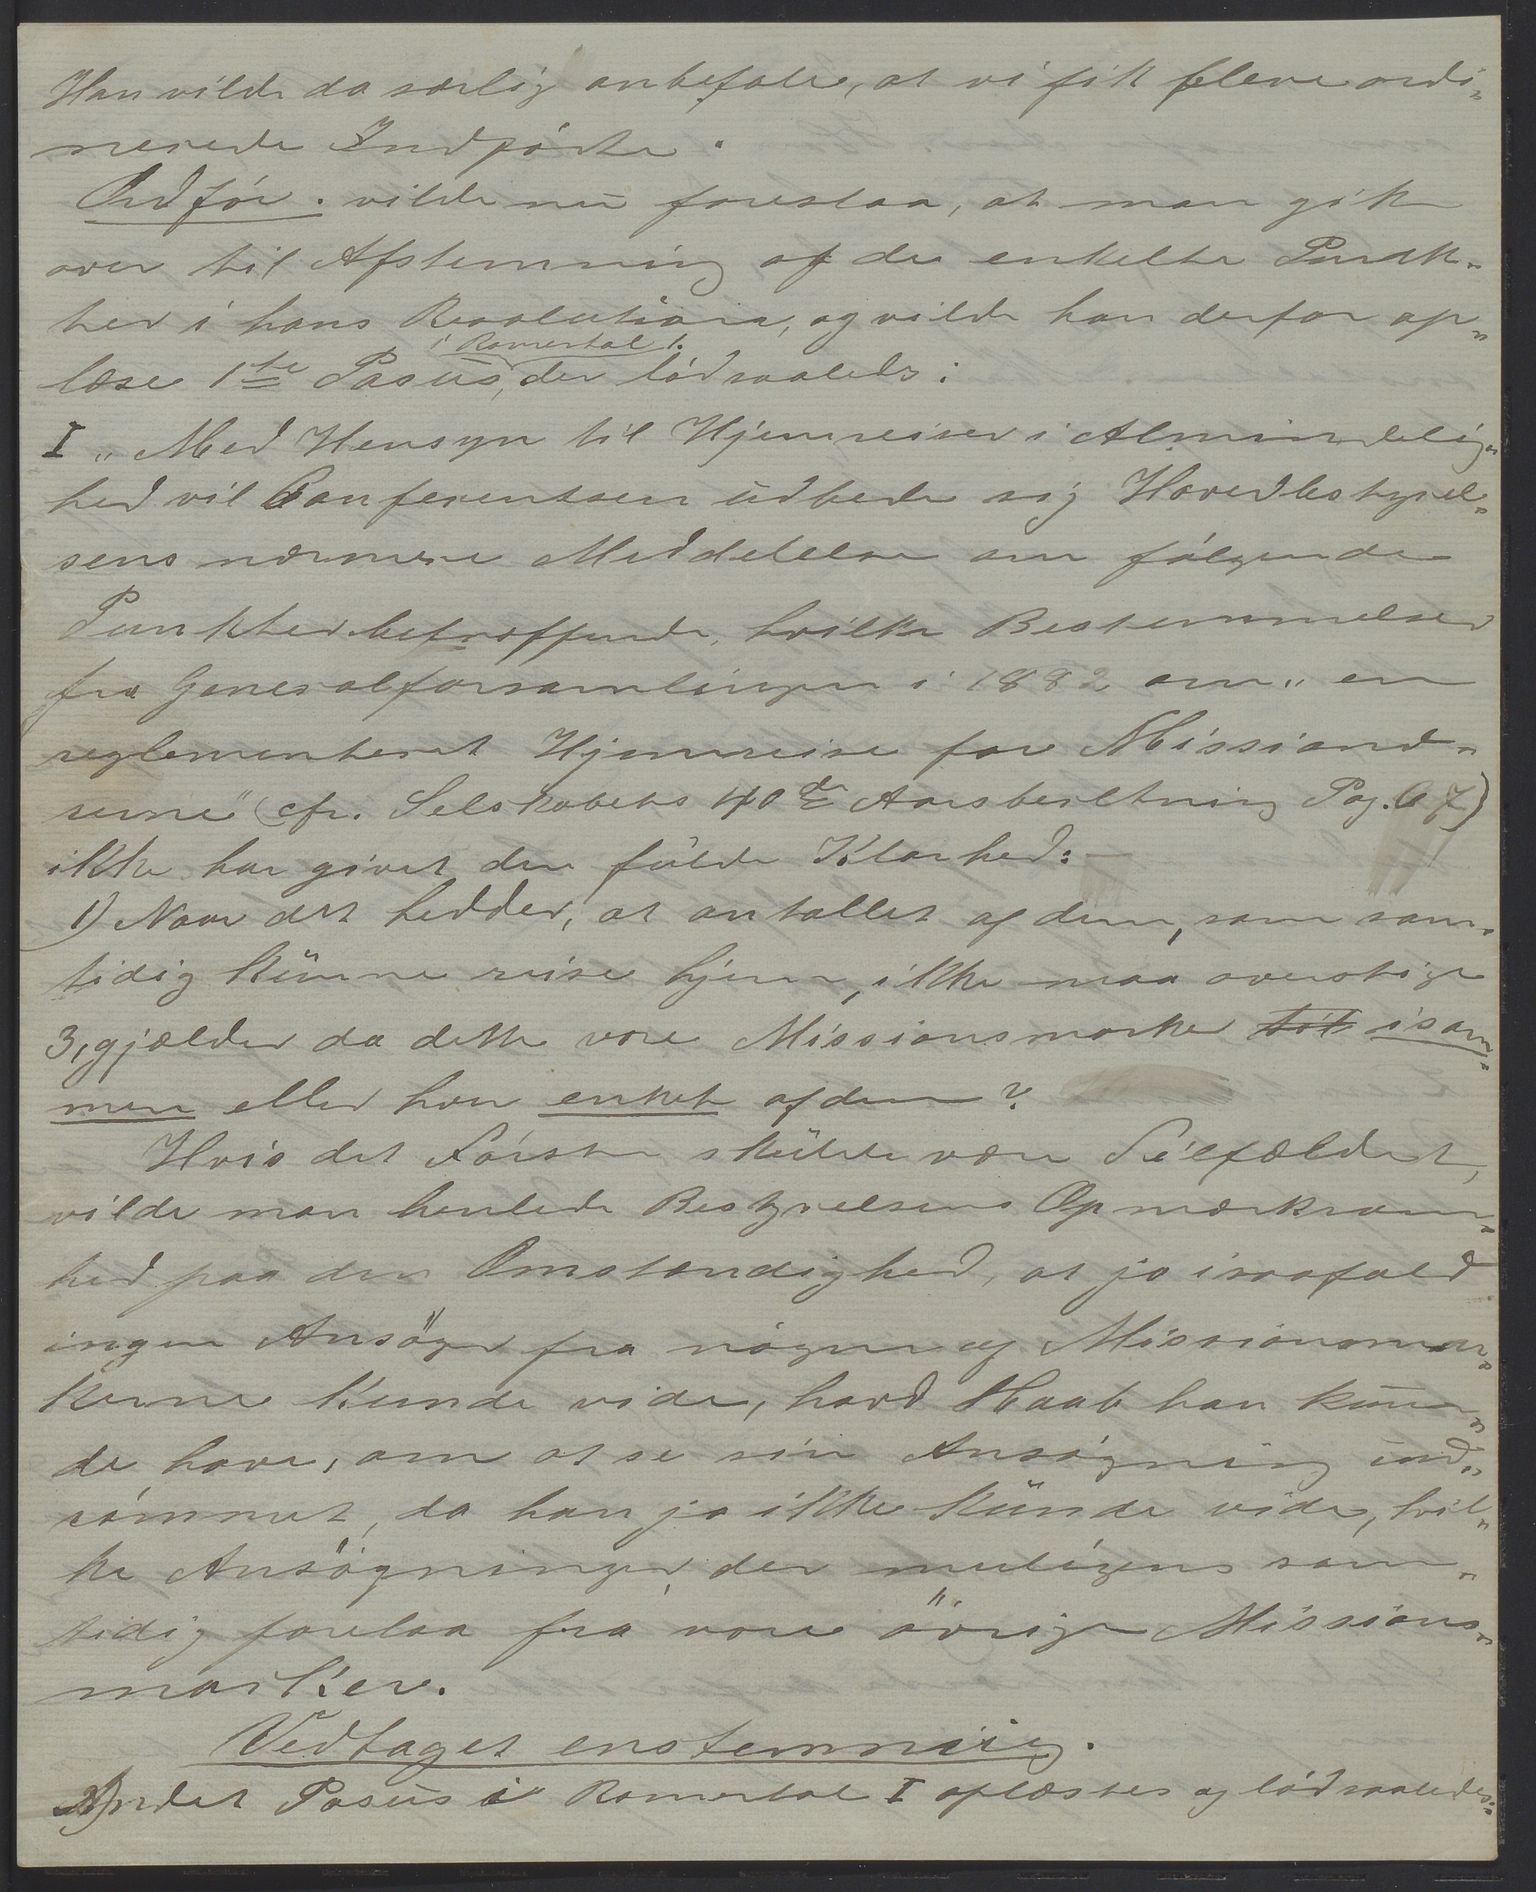 Han vilde da særlig anbefale, at vi fik flere ordi-
nerede Indfödte.
Ordför. vilde nu foreslaa, at man gik
over til Afstemning af de enkelte Punk-
ter i hans Resolution, og vilde han derfor op-
i Romertal 1.
læse 1ste Pasus, der lød saaledes:
I „Med Hensyn til Hjemreiser i Almindelig-
hed vil Conferentsen udbede sig Hovedbestyrel-
sens nærmere Meddelelse om følgende
Punkter betræffende, hvilke Bestemmelser
fra Generalforsamlingen i 1882 om „en
reglementeret Hjemreise for Missionæ-
rerne" (cfr. Selskabets 40de Aarsberetning Pag. 67)
ikke har givet den fulde Klarhed:
1) Naar det hedder, at antallet af dem, som sam-
tidig kunne reise hjem, ikke maa overstige
3, gjælder da dette vore Missionsmarker tit isam-
men eller hver enkelt af dem?
Hvis det Første skulde være Tilfældet,
vilde man henlede Bestyrelsens Opmærksom-
hed paa den Omstændighed, at jo isaafald
ingen Ansøger fra nogen af Missionsmar-
kerne kunde vide, hvad Haab han kun-
de have, om at se sin Ansøgning ind-
rømmet, da han jo ikke kunde vide, hvil-
ke Ansøgninger, der muligens sam-
tidig forelaa fra vore øvrige Missions-
marker.
Vedtaget enstemmig.
Andet Pasus i Romertal I oplæstes og lød saaledes: